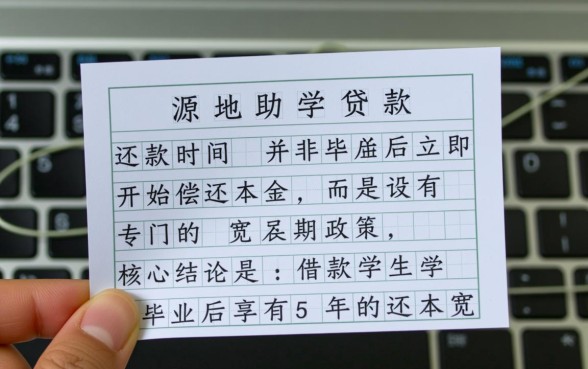 源地助学贷款
还款时间 并非毕后立即
开始偿还本金，而是设有
专门的 宽期政策，
核心结论是：借款学生学
毕业后享有5 年的还本宽